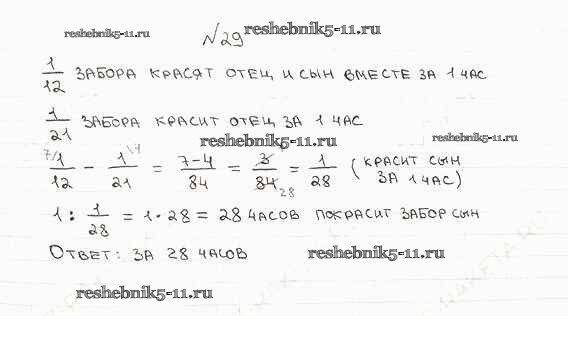 reshebnik5-11.ru №29 reshebnik5-11.ru
1/12 ЗАБОРА КРАСЯТ ОТЕЦ И СЫН ВМЕСТЕ ЗА 1 ЧАС
1/21 ЗАБОРА КРАСИТ ОТЕЦ ЗА 1 ЧАС
reshebnik5-11.ru reshebnik5-11.ru
7/ 1/12 - 1/21 \4 = 7-4/84 = 3/84 28 = 1/28 (КРАСИТ СЫН ЗА 1 ЧАС)
1 : 1/28 = 1·28 = 28 ЧАСОВ ПОКРАСИТ ЗАБОР СЫН
ОТВЕТ: ЗА 28 ЧАСОВ reshebnik5-11.ru
reshebnik5-11.ru